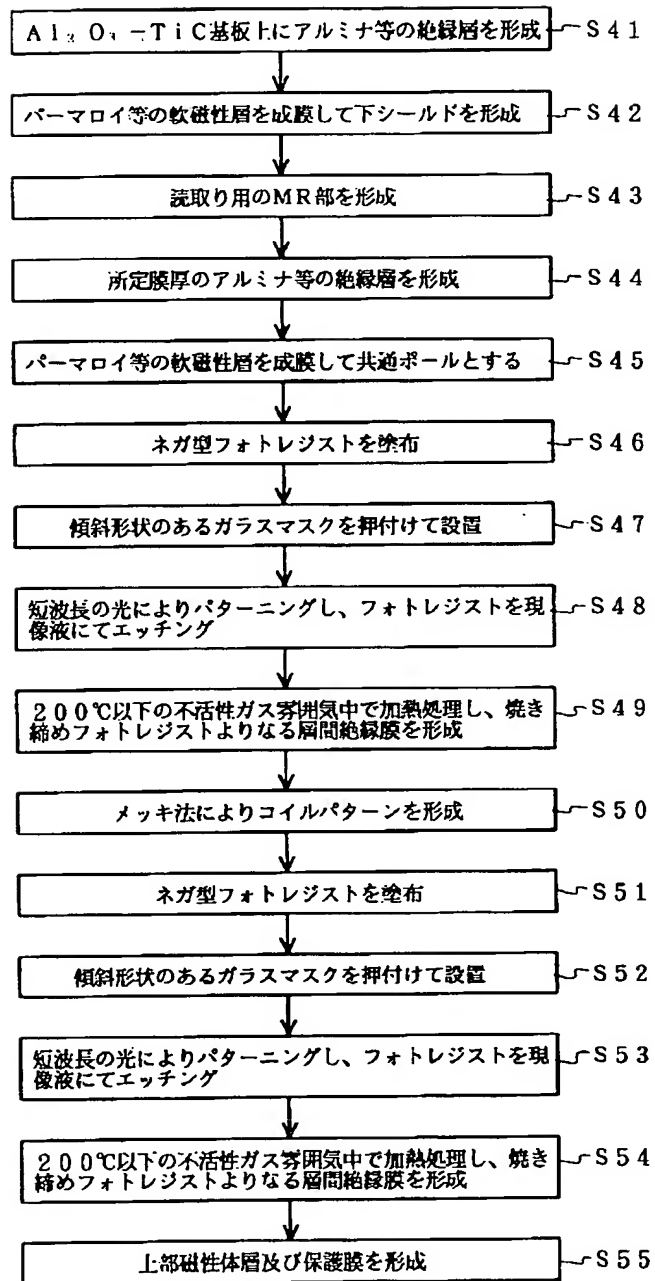 Al₂O₃－TiC基板上にアルミナ等の絶縁層を形成 S41
パーマロイ等の軟磁性層を成膜して下シールドを形成 S42
読取り用のMR部を形成 S43
所定膜厚のアルミナ等の絶縁層を形成 S44
パーマロイ等の軟磁性層を成膜して共通ポールとする S45
ネガ型フォトレジストを塗布 S46
傾斜形状のあるガラスマスクを押付けて設置 S47
短波長の光によりパターニングし、フォトレジストを現 S48
像液にてエッチング
200℃以下の不活性ガス雰囲気中で加熱処理し、焼き S49
締めフォトレジストよりなる層間絶縁膜を形成
メッキ法によりコイルパターンを形成 S50
ネガ型フォトレジストを塗布 S51
傾斜形状のあるガラスマスクを押付けて設置 S52
短波長の光によりパターニングし、フォトレジストを現 S53
像液にてエッチング
200℃以下の不活性ガス雰囲気中で加熱処理し、焼き S54
締めフォトレジストよりなる層間絶縁膜を形成
上部磁性体層及び保護膜を形成 S55